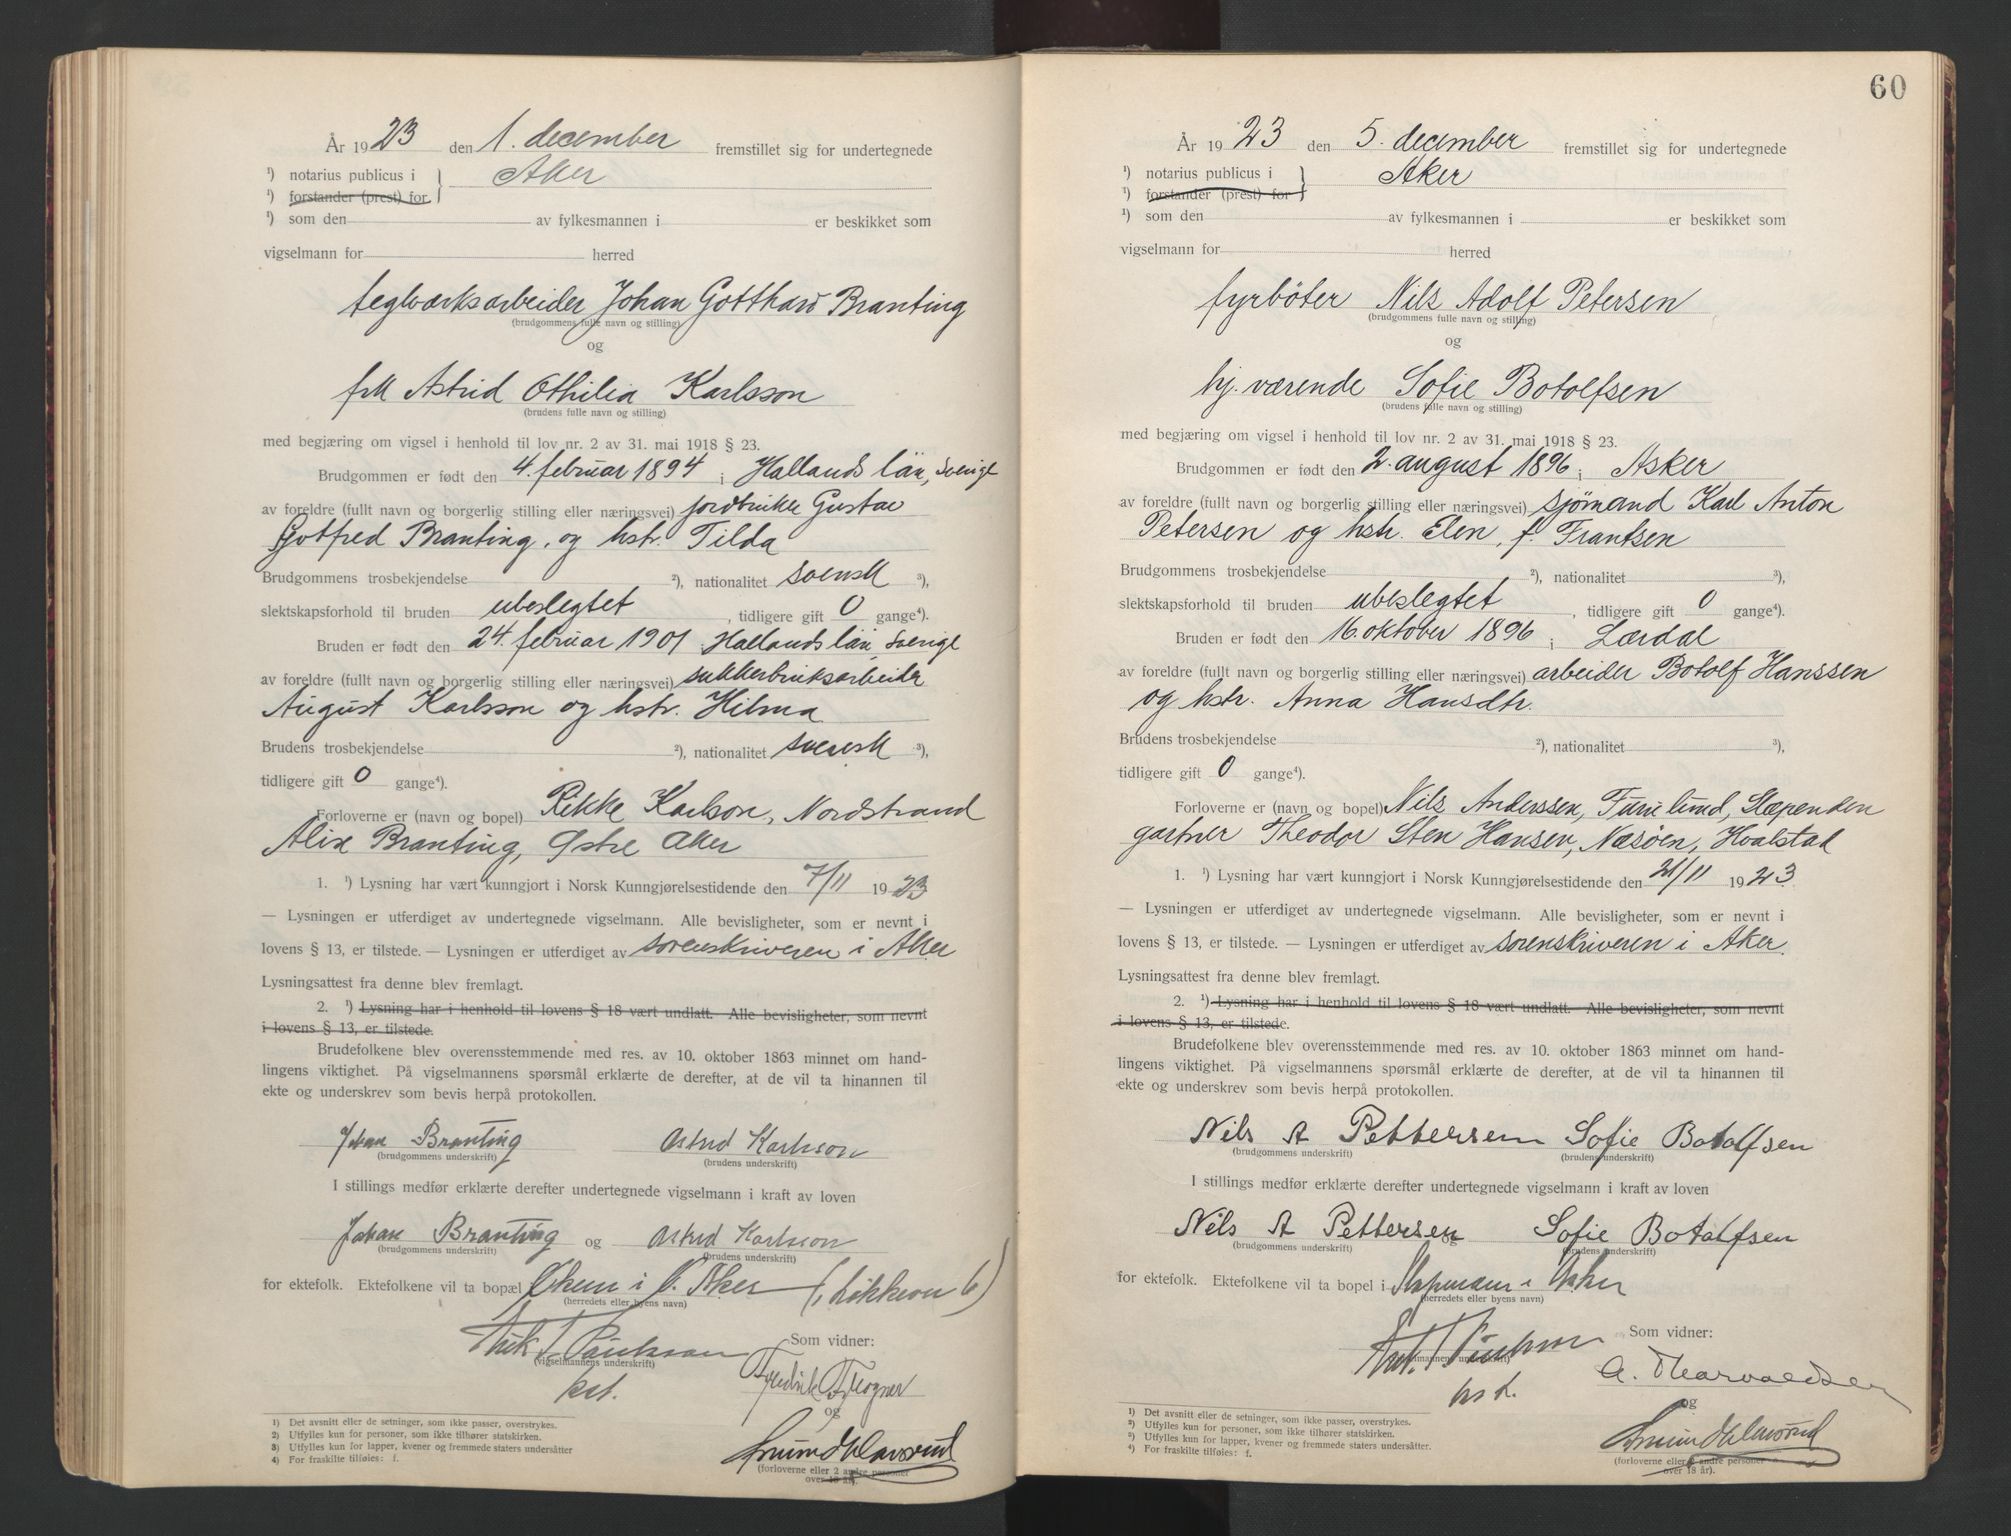 År 1923 den 1. december fremstillet sig for undertegnede
¹) notarius publicus i } Aker
¹) forstander (prest) for
¹) som den av fylkesmannen i er beskikket som
vigselmann for herred
teglverksarbeider Johan Gotthard Branting
(brudgommens fulle navn og stilling)
og
frk Astrid Othilia Karlsson
(brudens fulle navn og stilling)
med begjæring om vigsel i henhold til lov nr. 2 av 31. mai 1918 § 23.
Brudgommen er født den 4. februar 1894 i Hallands län, Sverige
av foreldre (fullt navn og borgerlig stilling eller næringsvei) jordbruker Gustav
Gotfred Branting, og hstr. Tilda
Brudgommens trosbekjendelse ²), nationalitet svensk ³),
slektskapsforhold til bruden ubeslegtet , tidligere gift 0 gange⁴).
Bruden er født den 24. februar 1901 Hallands län, Sverige
av foreldre (fullt navn og borgerlig stilling eller næringsvei) sukkerbruksarbeider
August Karlsson og hstr. Hilma
Brudens trosbekjendelse ²), nationalitet svensk ³),
tidligere gift 0 gange⁴).
Forloverne er (navn og bopel) Rikke Karlson, Nordstrand
Alix Branting, Østre Aker
1. ¹) Lysning har vært kunngjort i Norsk Kunngjørelsestidende den 7/11 1923
— Lysningen er utferdiget av undertegnede vigselmann. Alle bevisligheter, som er nevnt i
lovens § 13, er tilstede. — Lysningen er utferdiget av sorenskriveren i Aker
Lysningsattest fra denne blev fremlagt.
2. ¹) Lysning har i henhold til lovens § 18 vært undlatt. Alle bevisligheter, som nevnt
i lovens § 13, er tilstede.
Brudefolkene blev overensstemmende med res. av 10. oktober 1863 minnet om hand-
lingens viktighet. På vigselmannens spørsmål erklærte de derefter, at de vil ta hinannen til
ekte og underskrev som bevis herpå protokollen.
Johan Branting Astrid Karlsson
(brudgommens underskrift) (brudens underskrift)
I stillings medfør erklærte derefter undertegnede vigselmann i kraft av loven
Johan Branting og Astrid Karlsson
(brudgommens underskrift) (brudens underskrift)
for ektefolk. Ektefolkene vil ta bopæl i Ø. Aker
(herredets eller byens navn)
Som vidner:
(vigselmannens underskrift)
kst.
Fredrik
og
(forloverne eller 2 andre personer
over 18 år).
1) Det avsnitt eller de setninger, som ikke passer, overstrykes.
2) Utfylles kun for personer, som ikke tilhører statskirken.
3) Utfylles kun for lapper, kvener og fremmede staters undersåtter
4) For fraskilte tilføies: f.
60
År 1923 den 5. december fremstillet sig for undertegnede
¹) notarius publicus i } Aker
¹) forstander (prest) for
¹) som den av fylkesmannen i er beskikket som
vigselmann for herred
fyrböter Nils Adolf Petersen
(brudgommens fulle navn og stilling)
og
hj. værende Sofie Botolfsen
(brudens fulle navn og stilling)
med begjæring om vigsel i henhold til lov nr. 2 av 31. mai 1918 § 23.
Brudgommen er født den 2. august 1896 i Asker
av foreldre (fullt navn og borgerlig stilling eller næringsvei) sjømand Karl Anton
Petersen og hstr. Elen, f. Frantsen
Brudgommens trosbekjendelse ²), nationalitet ³),
slektskapsforhold til bruden ubeslegtet , tidligere gift 0 gange⁴).
Bruden er født den 16. oktober 1896 i Lærdal
av foreldre (fullt navn og borgerlig stilling eller næringsvei) arbeider Botolf Hanssen
og hstr. Anna Hansdtr.
Brudens trosbekjendelse ²), nationalitet ³),
tidligere gift 0 gange⁴).
Forloverne er (navn og bopel) Nils Anderssen, Furulund, Slæpenden
gartner Theodor Sten Hansen, Næsøen, Hvalstad
1. ¹) Lysning har vært kunngjort i Norsk Kunngjørelsestidende den 21/11 1923
— Lysningen er utferdiget av undertegnede vigselmann. Alle bevisligheter, som er nevnt i
lovens § 13, er tilstede. — Lysningen er utferdiget av sorenskriveren i Aker
Lysningsattest fra denne blev fremlagt.
2. ¹) Lysning har i henhold til lovens § 18 vært undlatt. Alle bevisligheter, som nevnt
i lovens § 13, er tilstede.
Brudefolkene blev overensstemmende med res. av 10. oktober 1863 minnet om hand-
lingens viktighet. På vigselmannens spørsmål erklærte de derefter, at de vil ta hinannen til
ekte og underskrev som bevis herpå protokollen.
Nils A Pettersen Sofie Botolfsen
(brudgommens underskrift) (brudens underskrift)
I stillings medfør erklærte derefter undertegnede vigselmann i kraft av loven
Nils A Pettersen og Sofie Botolfsen
(brudgommens underskrift) (brudens underskrift)
for ektefolk. Ektefolkene vil ta bopel i Slæpenden i Asker
(herredets eller byens navn)
Som vidner:
kst.
og
(forloverne eller 2 andre personer
over 18 år).
1) Det avsnitt eller de setninger, som ikke passer, overstrykes.
2) Utfylles kun for personer, som ikke tilhører statskirken.
3) Utfylles kun for lapper, kvener og fremmede staters undersåtter.
4) For fraskilte tilføies: f.